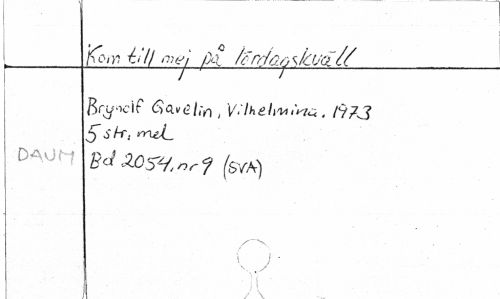 Kom till mej på lördagskväll
Brynolf Gavelin, Vilhelmina. 1973
5 str, mel
DAUM Bd 2054, nr 9 (SVA)